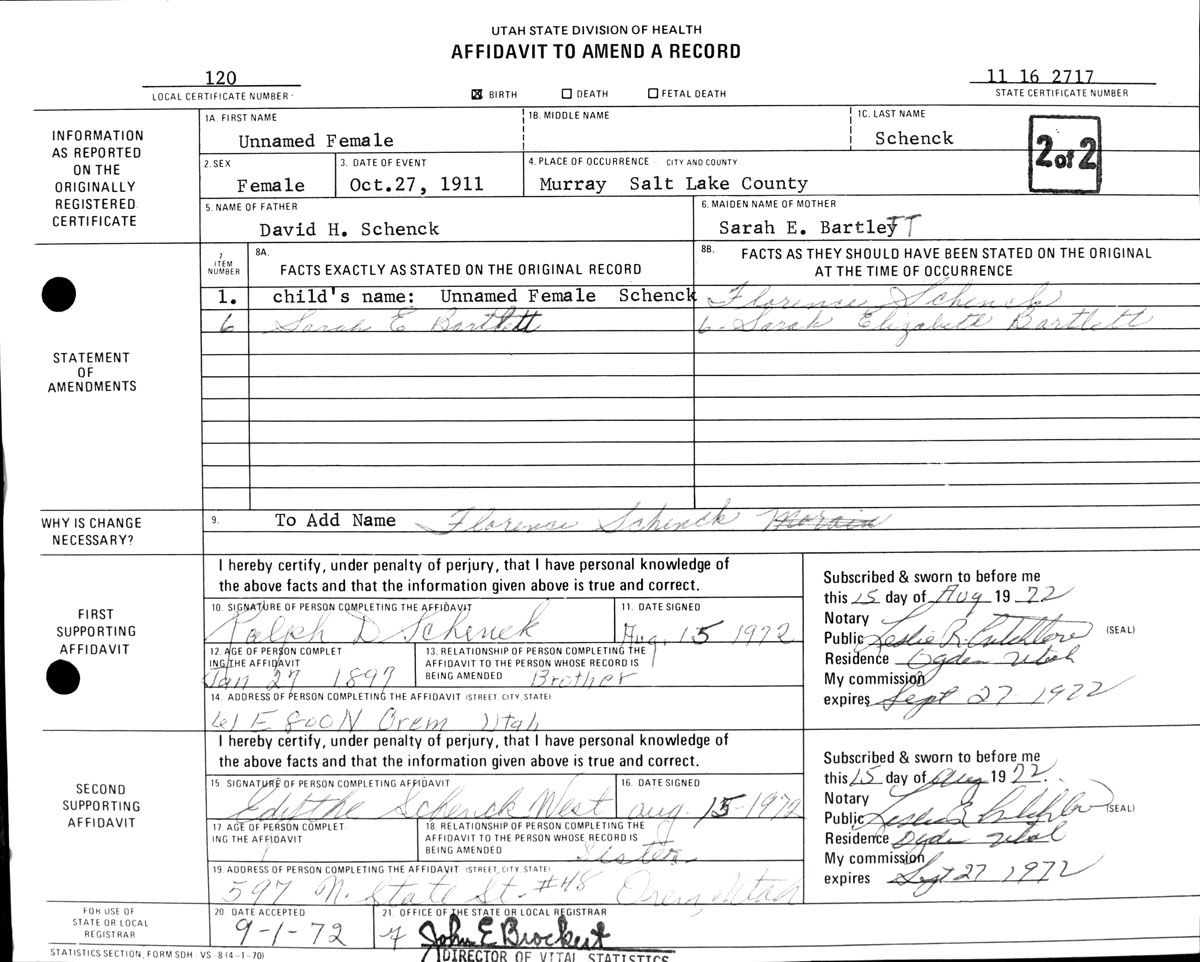 UTAH STATE DIVISION OF HEALTH
AFFIDAVIT TO AMEND A RECORD
120
LOCAL CERTIFICATE NUMBER
☒ BIRTH ☐ DEATH ☐ FETAL DEATH
11 16 2717
STATE CERTIFICATE NUMBER
INFORMATION AS REPORTED ON THE ORIGINALLY REGISTERED CERTIFICATE
1A. FIRST NAME
Unnamed Female
1B. MIDDLE NAME
1C. LAST NAME
Schenck
2 of 2
2. SEX
Female
3. DATE OF EVENT
Oct.27, 1911
4. PLACE OF OCCURRENCE CITY AND COUNTY
Murray Salt Lake County
5. NAME OF FATHER
David H. Schenck
6. MAIDEN NAME OF MOTHER
Sarah E. Bartlett
STATEMENT OF AMENDMENTS
7 ITEM NUMBER
8A. FACTS EXACTLY AS STATED ON THE ORIGINAL RECORD
8B. FACTS AS THEY SHOULD HAVE BEEN STATED ON THE ORIGINAL
AT THE TIME OF OCCURRENCE
1. child's name: Unnamed Female Schenck Florence Schenck
6 Sarah E Bartlett 6- Sarah Elizabeth Bartlett
WHY IS CHANGE NECESSARY?
9. To Add Name Florence Schenck
FIRST SUPPORTING AFFIDAVIT
I hereby certify, under penalty of perjury, that I have personal knowledge of
the above facts and that the information given above is true and correct.
10. SIGNATURE OF PERSON COMPLETING THE AFFIDAVIT
Ralph D Schenck
11. DATE SIGNED
Aug. 15 1972
12. AGE OF PERSON COMPLET
ING THE AFFIDAVIT
Jan 27 1897
13. RELATIONSHIP OF PERSON COMPLETING THE
AFFIDAVIT TO THE PERSON WHOSE RECORD IS
BEING AMENDED Brother
14. ADDRESS OF PERSON COMPLETING THE AFFIDAVIT (STREET, CITY, STATE)
61 E 800 N Orem Utah
Subscribed & sworn to before me
this 15 day of Aug 19 72
Notary
Public Leslie R. (SEAL)
Residence Ogden Utah
My commission
expires Sept 27 1972
SECOND SUPPORTING AFFIDAVIT
I hereby certify, under penalty of perjury, that I have personal knowledge of
the above facts and that the information given above is true and correct.
15. SIGNATURE OF PERSON COMPLETING AFFIDAVIT
Edythe Schenck West
16. DATE SIGNED
aug. 15-1972
17. AGE OF PERSON COMPLET
ING THE AFFIDAVIT
18. RELATIONSHIP OF PERSON COMPLETING THE
AFFIDAVIT TO THE PERSON WHOSE RECORD IS
BEING AMENDED Sister
19. ADDRESS OF PERSON COMPLETING THE AFFIDAVIT (STREET, CITY, STATE)
597 N. State St. #48 Orem, Utah
Subscribed & sworn to before me
this 15 day of Aug 19 72.
Notary
Public (SEAL)
Residence Ogden Utah
My commission
expires Sept 27 1972
FOR USE OF STATE OR LOCAL REGISTRAR
20. DATE ACCEPTED
9-1-72
21. OFFICE OF THE STATE OR LOCAL REGISTRAR
John E Brockert
DIRECTOR OF VITAL STATISTICS
STATISTICS SECTION, FORM SDH VS-8 (4-1-70)